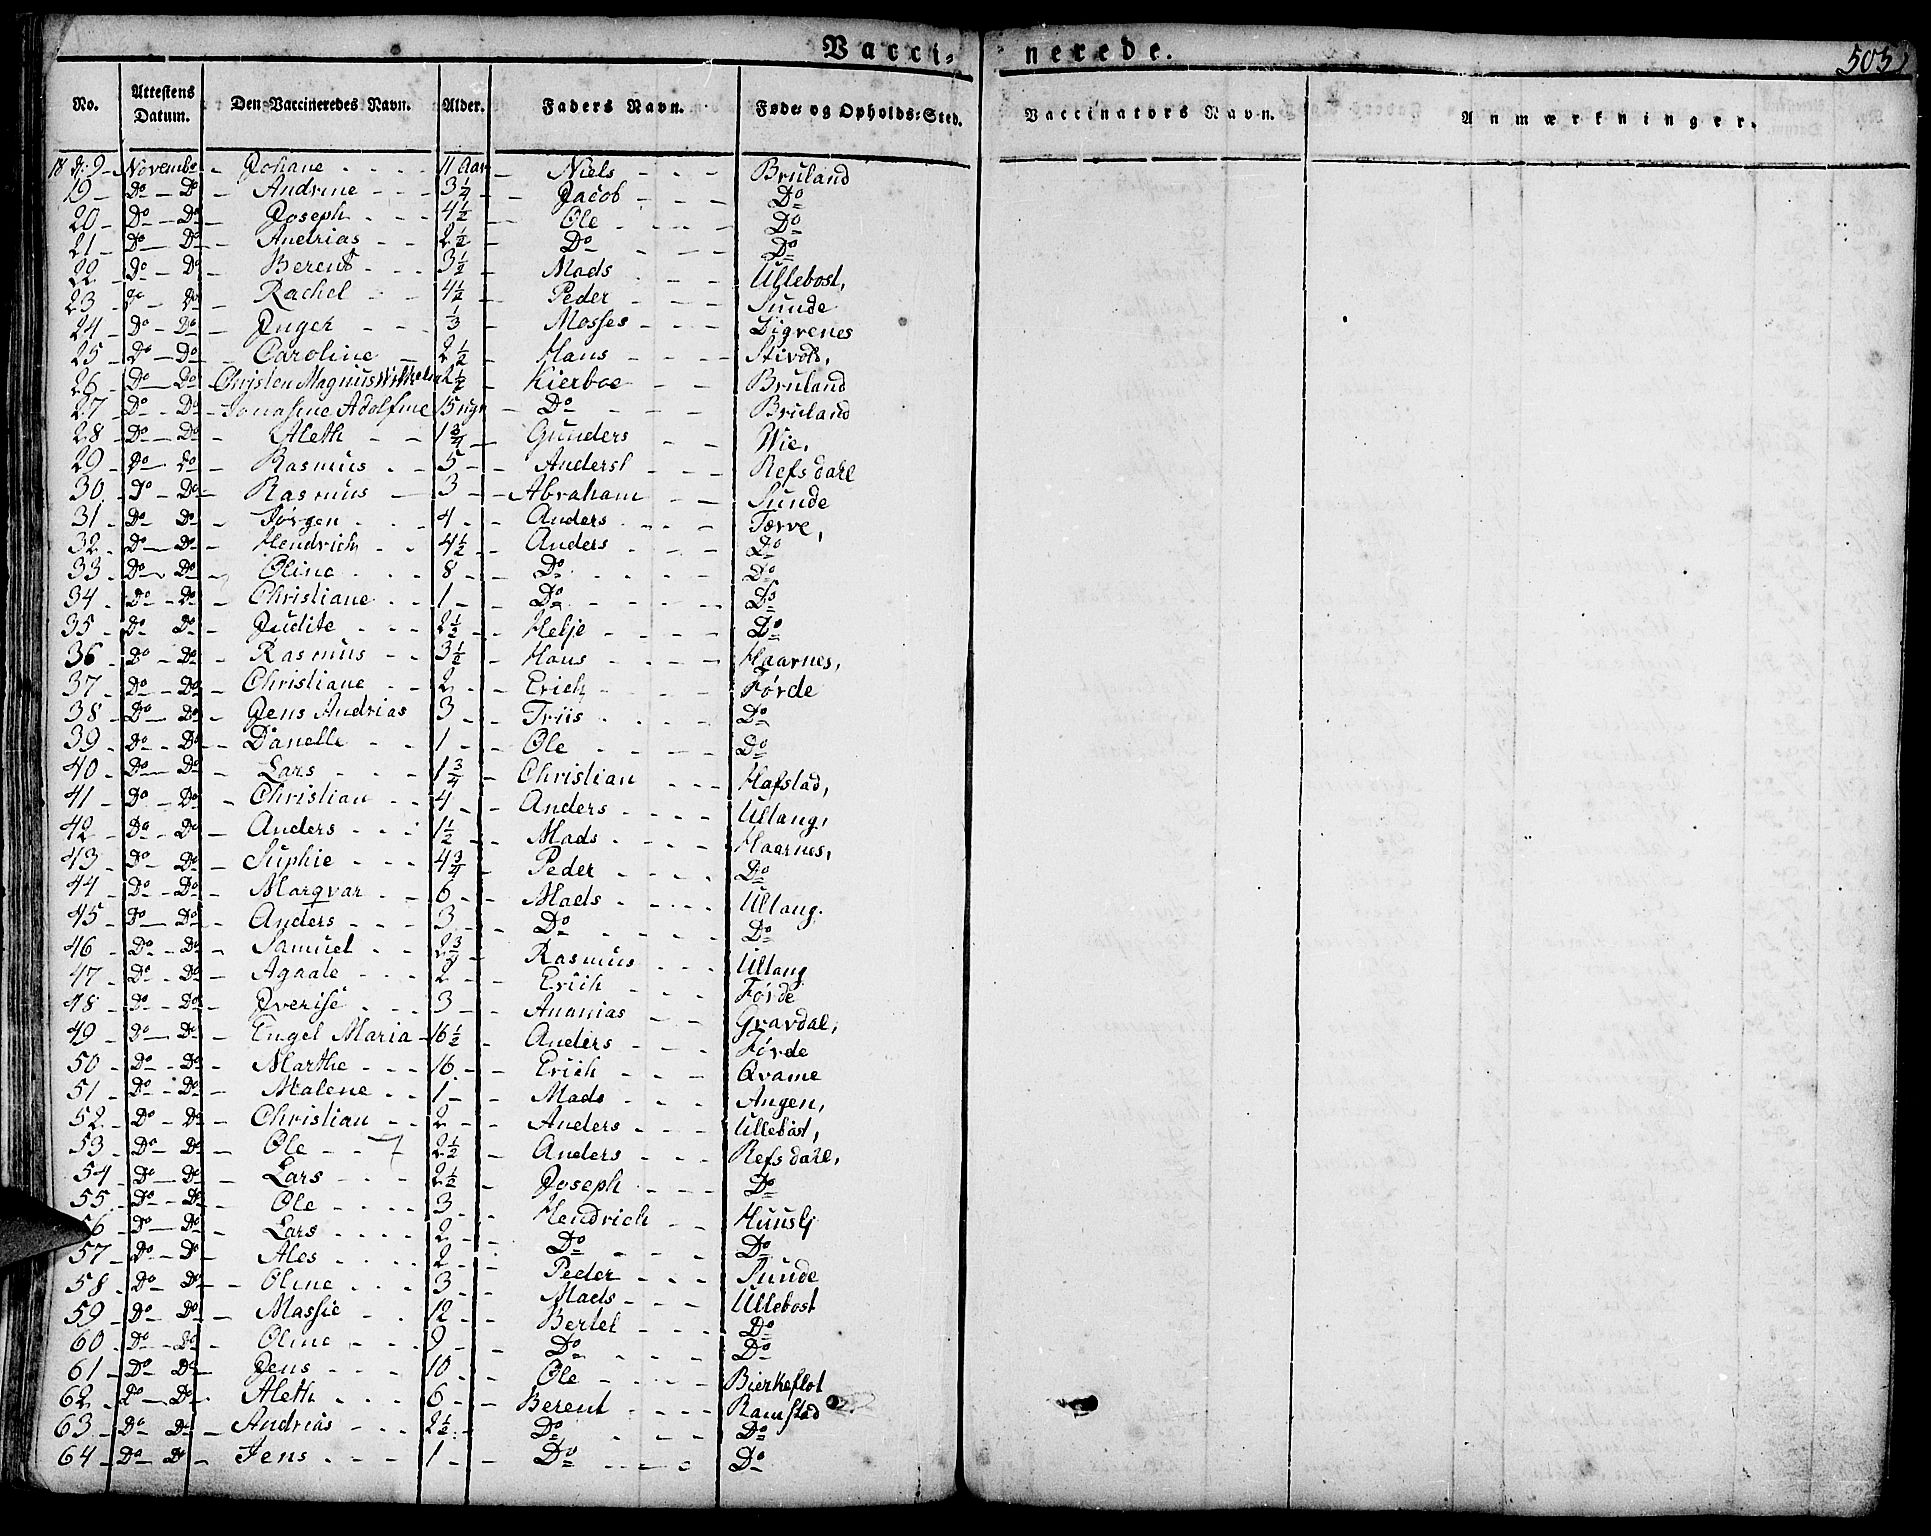 Vaccinerede.
505
No. | Attestens Datum. | Den Vaccineredes Navn. | Alder. | Faders Navn. | Føde- og Opholds-Sted. | Vaccinators Navn. | Anmærkninger.
18 | 9 Novembr | Johane | 11 Aar | Niels | Bruland
19 | Do Do | Andrine | 3½ | Jacob | Do
20 | Do Do | Joseph | 4½ | Ole | Do
21 | Do Do | Andrias | 2½ | Do | Do
22 | Do Do | Berent | 3½ | Mads | Ullebost,
23 | Do Do | Rachel | 4½ | Peder | Sunde
24 | Do Do | Inger | ⅓ | Mosses | Digrenes
25 | Do Do | Caroline | 2½ | Hans |
26 | Do Do | Christen Magnus Wilhelm | 2½ | Kierboe | Bruland
27 | Do Do | Jonasine Adolfine | 15 ugr | Do | Bruland
28 | Do Do | Aleth | 1¾ | Gunders | Wie,
29 | Do Do | Rasmus | 5 | Anders | Refsdahl
30 | Do Do | Rasmus | 3 | Abraham | Sunde
31 | Do Do | Jørgen | 4 | Anders | Tørve,
32 | Do Do | Hendrich | 4½ | Anders | Do
33 | Do Do | Oline | 8 | Do | Do
34 | Do Do | Christiane | 1 | Do | Do
35 | Do Do | Judite | 2½ | Helje | Do
36 | Do Do | Rasmus | 3½ | Hans | Haarnes,
37 | Do Do | Christiane | 2 | Erich | Førde
38 | Do Do | Jens Andrias | 3 | Friis | Do
39 | Do Do | Danelle | 1 | Ole | Do
40 | Do Do | Lars | 1¾ | Christian | Hafstad,
41 | Do Do | Christian | 4 | Anders | Ullang,
42 | Do Do | Anders | 1½ | Mads | Haarnes,
43 | Do Do | Suphie | 4¾ | Peder | Do
44 | Do Do | Marqvar | 6 | Mads | Ullang.
45 | Do Do | Anders | 3 | Do | Do
46 | Do Do | Samuel | 2¾ | Rasmus | Ullang
47 | Do Do | Agaale | 2 | Erich | Førde
48 | Do Do | Sverise | 3 | Ananias | Gravdal,
49 | Do Do | Engel Maria | 16½ | Anders | Førde
50 | Do Do | Marthe | 16 | Erich | Qvame
51 | Do Do | Malene | 1 | Mads | Angen,
52 | Do Do | Christian | 2 | Anders | Ullebost,
53 | Do Do | Ole | 2½ | Anders | Refsdahl,
54 | Do Do | Lars | 2½ | Joseph | Do
55 | Do Do | Ole | 3 | Hendrich | Huuslj
56 | Do Do | Lars | 2 | Do | Do
57 | Do Do | Ales | 2 | Peder | Sunde
58 | Do Do | Oline | 3 | Mads | Ullebost
59 | Do Do | Massie | 12 | Bertel | Do
60 | Do Do | Oline | 9 | Do | Do
61 | Do Do | Jens | 10 | Ole | Bierkeflot
62 | Do Do | Aleth | 6 | Berent | Ramstad
63 | Do Do | Andrias | 2½ | Do | Do
64 | Do Do | Jens | 1 | Do | Do